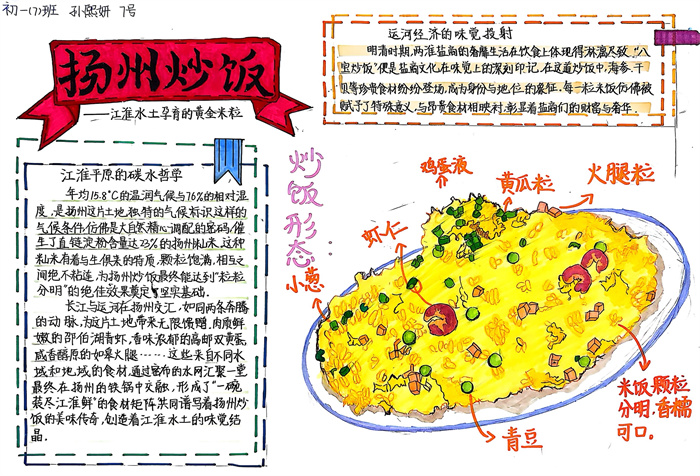 初一(7)班 孙熙妍 7号
扬州炒饭
——江淮水土孕育的黄金米粒
运河经济的味觉投射
明清时期,两淮盐商的奢靡生活在饮食上体现得淋漓尽致,"八
宝炒饭"便是盐商文化在味觉上的深刻印记,在这道炒饭中,海参、干
贝等珍贵食材纷纷登场,成为身份与地位的象征,每一粒米饭仿佛被
赋予了特殊意义,与昂贵食材相映衬,彰显着盐商们的财富与奢华.
江淮平原的碳水哲学
年均15.8℃的温润气候与76%的相对湿
度,是扬州这片土地独特的气候标识这样的
气候条件仿佛是大自然精心调配的密码,催
生了直链淀粉含量达23%的扬州籼米,这种
籼米有着与生俱来的特质,颗粒饱满,相互之
间绝不粘连,为扬州炒饭最终能达到"粒粒
分明"的绝佳效果奠定了坚实基础.
长江与运河在扬州交汇,如同两条奔腾
的动脉,为这片土地带来无限馈赠,肉质鲜
嫩的邵伯湖青虾,香味浓郁的高邮双黄蛋,
咸香醇厚的如皋火腿……这些来自不同水
域和地域的食材,通过密布的水网汇聚一堂
最终在扬州的铁锅中交融,形成了"一碗
装尽江淮鲜"的食材矩阵共同谱写着扬州炒
饭的美味传奇,创造着江淮水土的味觉结
晶.
炒饭形态:
鸡蛋液
黄瓜粒
火腿粒
虾仁
小葱
青豆
米饭颗粒
分明,香糯
可口.